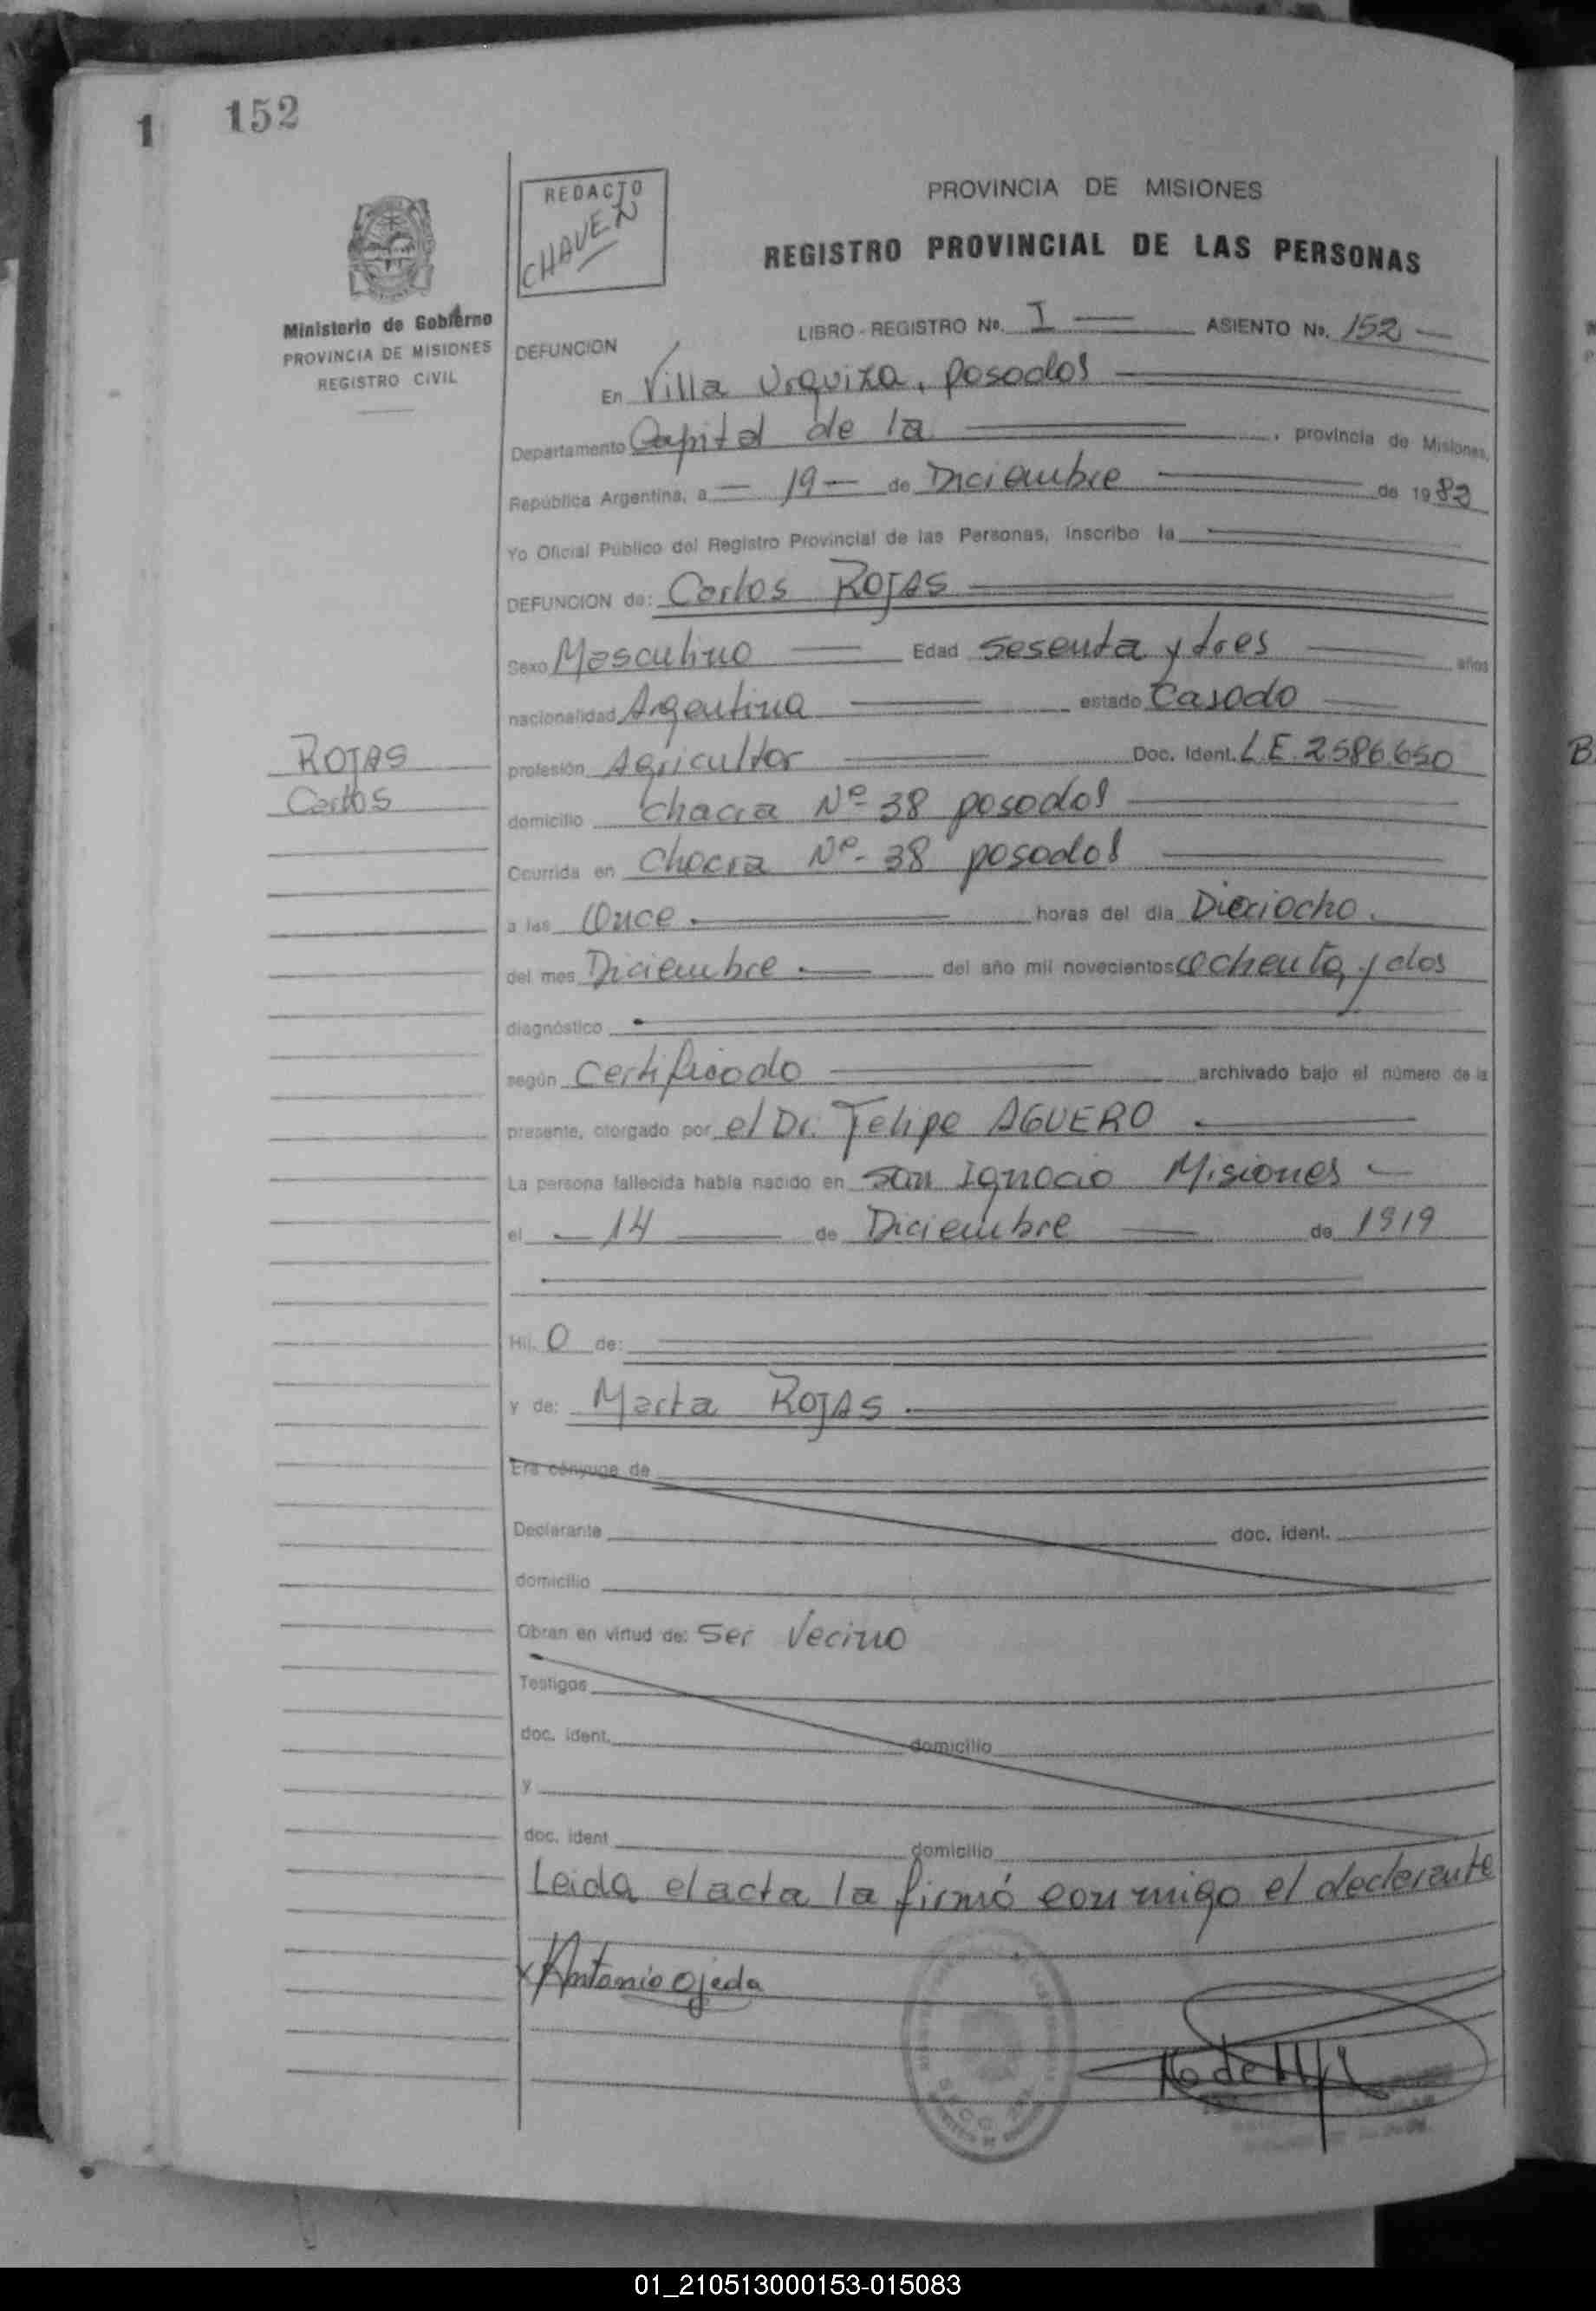 1 152
REDACTO
CHAVEZ
PROVINCIA DE MISIONES
REGISTRO PROVINCIAL DE LAS PERSONAS
Ministerio de Gobierno
PROVINCIA DE MISIONES
REGISTRO CIVIL
LIBRO - REGISTRO No. I ASIENTO No. 152
DEFUNCION
En Villa Urquiza, posadas
Departamento Capital de la , provincia de Misiones,
República Argentina, a 19 de Diciembre de 1982
Yo Oficial Público del Registro Provincial de las Personas, inscribo la
DEFUNCION de: Carlos ROJAS
Sexo Masculino Edad sesenta y tres años
nacionalidad Argentina estado Casado
ROJAS
Carlos
profesión Agricultor Doc. Ident. L.E. 2.586.650
domicilio Chacra Nº 38 posadas
Ocurrida en Chacra Nº 38 posadas
a las Once horas del día Dieciocho.
del mes Diciembre del año mil novecientos ochenta y dos
diagnóstico
según Certificado archivado bajo el número de la
presente, otorgado por el Dr. Felipe AGUERO
La persona fallecida había nacido en San Ignacio Misiones
el 14 de Diciembre de 1919
Hij O de:
y de: Marta ROJAS
Era cónyuge de
Declarante doc. ident.
domicilio
Obran en virtud de: Ser Vecino
Testigos
doc. ident. domicilio
y
doc. ident domicilio
Leida el acta la firmó conmigo el declarante
x Antonio Ojeda
01_210513000153-015083